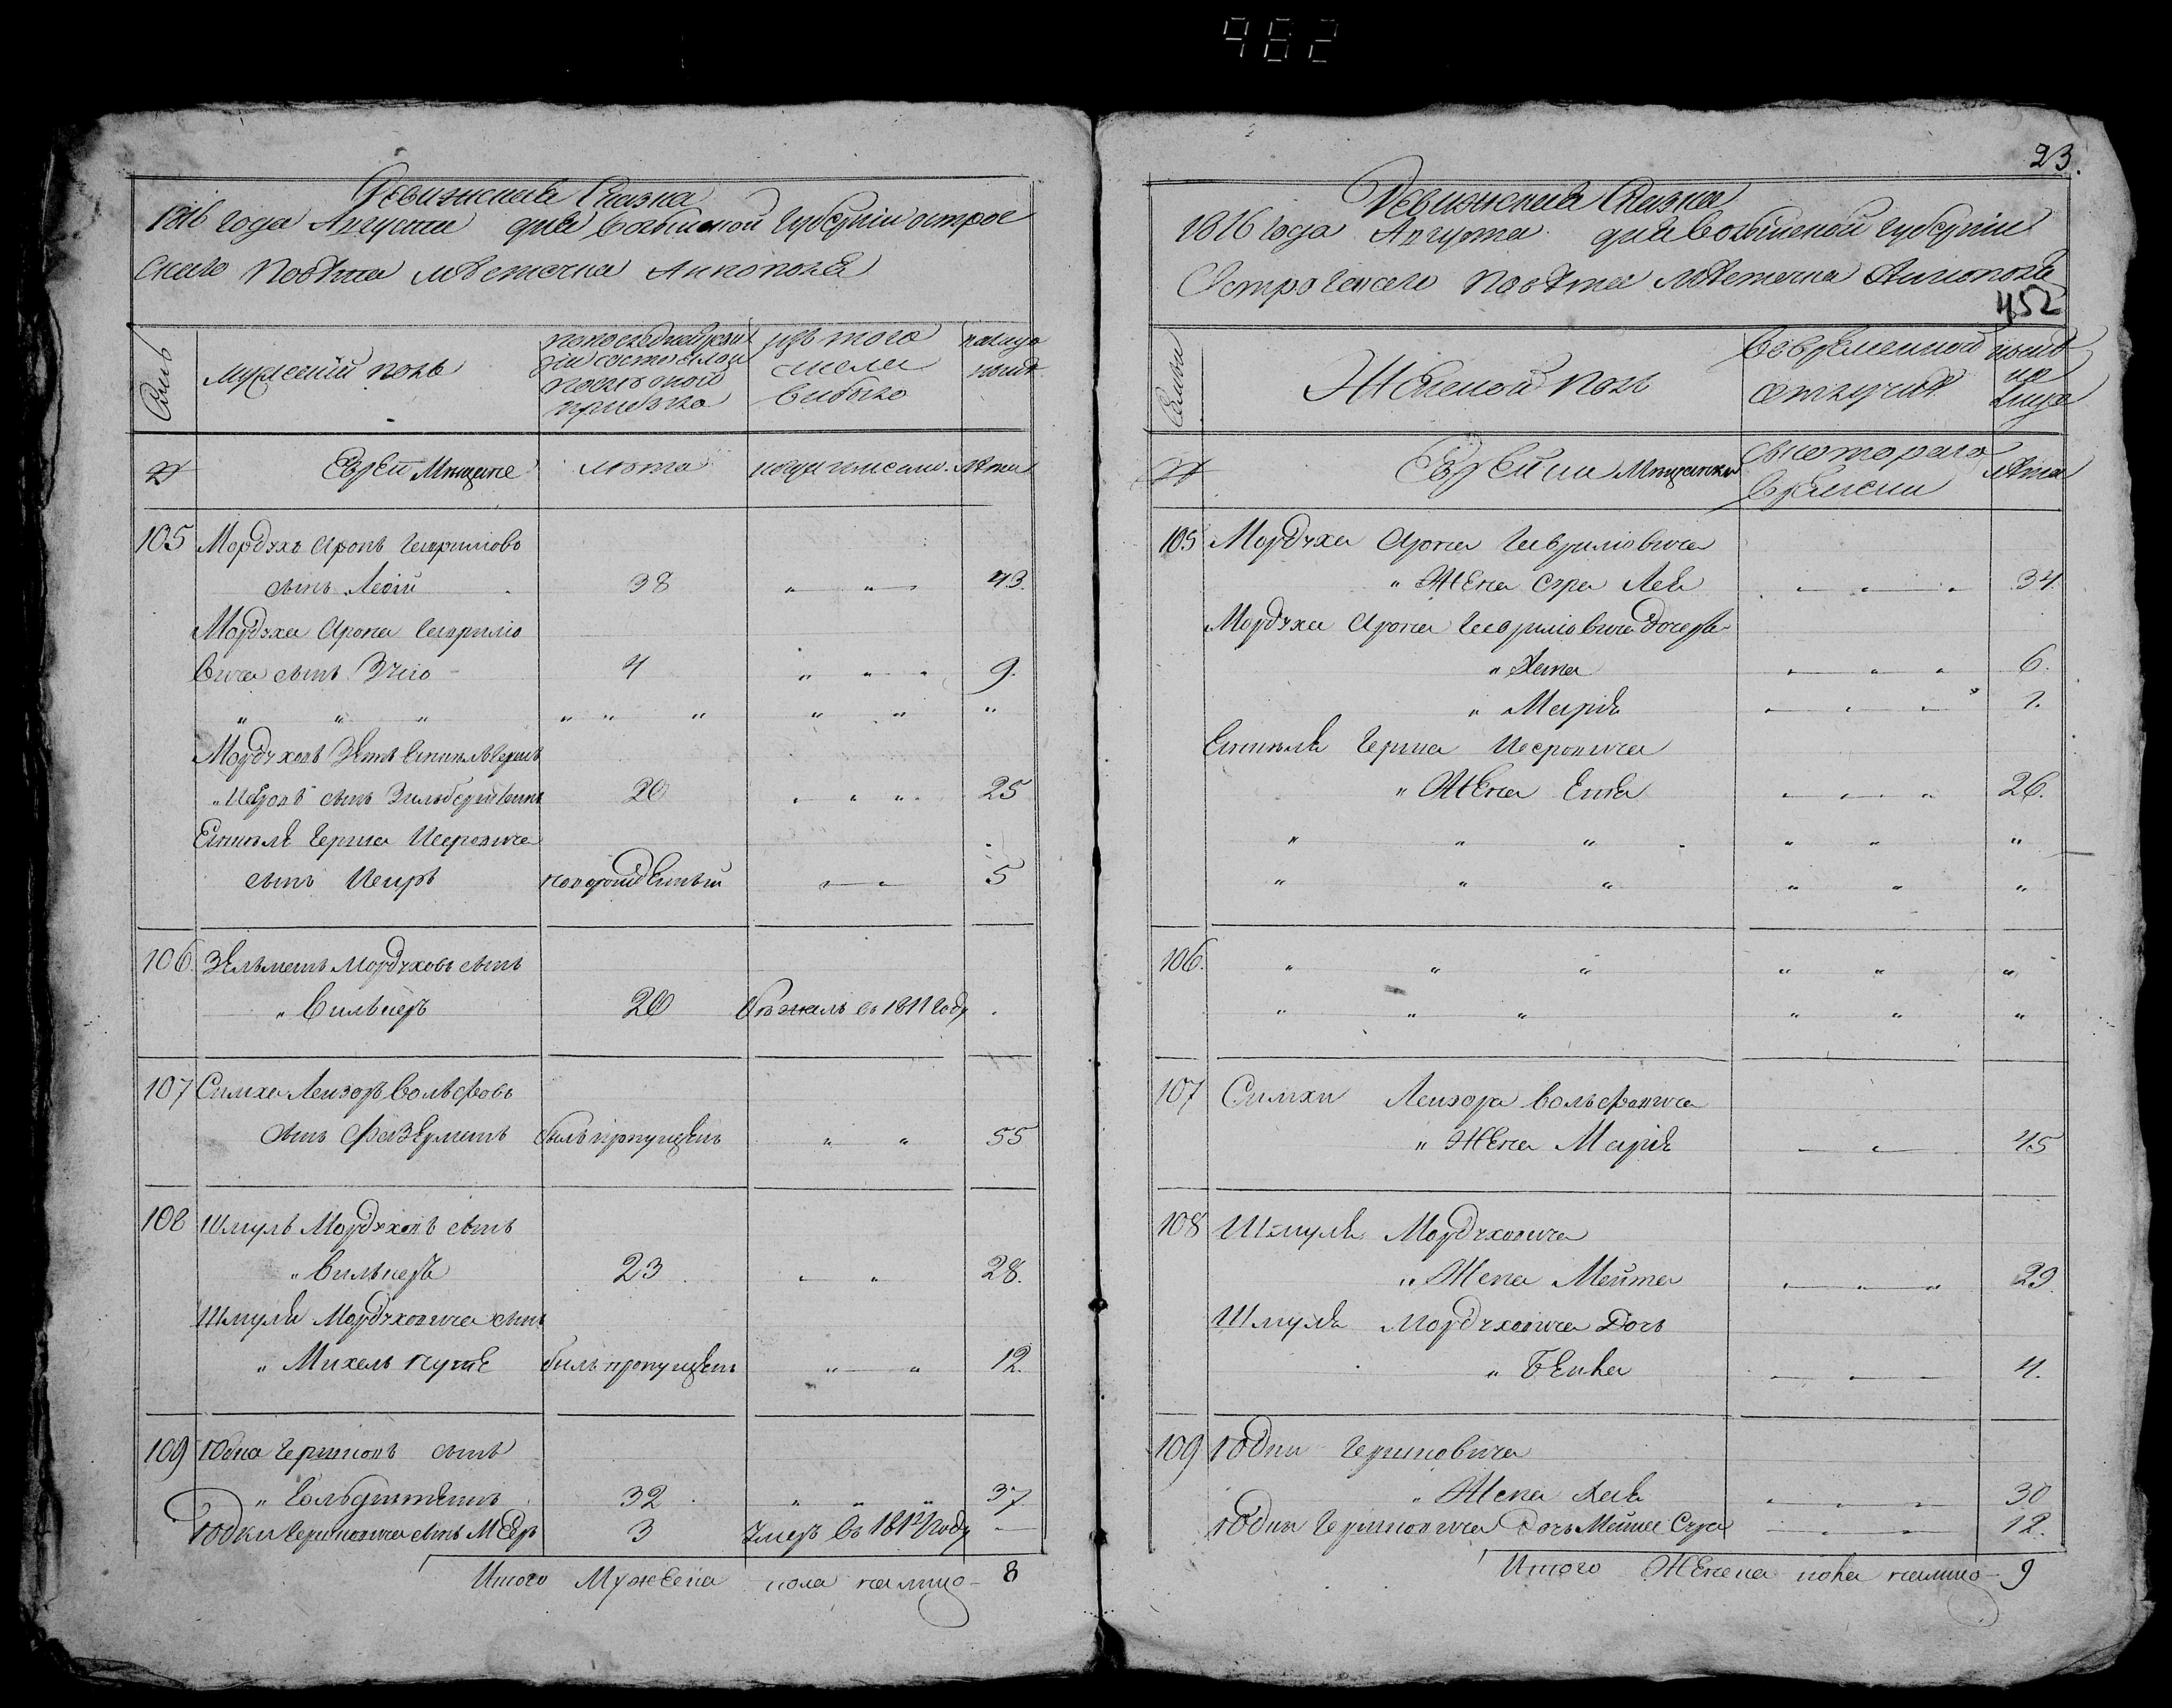 982
Ревижская Сказка
1816 года Августа дня Волынской Губернии острог
ского Повѣта мѣстечка Аннополя
Семьи
мужеский полъ
по последней реви
зии состояло и
после оной
прибыло
изъ того
числа
выбыло
налицо
ныне
№
Еврей Мещане
лѣта
лѣта
105 Мордухъ Аронъ Гавриловъ
сынъ 38 " " 43.
Мордуха Арона Гаврило
вича сынъ 4 " " " 9.
" " " " " " " " "
Мордуховъ Зять
сынъ 20 " " " 25
Герша
сынъ новорожденный " " 5
106 Зельманъ Мордуховъ сынъ
" Вильнеръ 20 бежалъ въ 1811 году
107 Симха Лейзоръ Вольфовъ
сынъ былъ пропущенъ " " 55
108 Шмуль Мордуховъ сынъ
" Вильнеръ 23 " " 28.
Шмуля Мордуховича сынъ
" Михель былъ пропущенъ " " 12.
109 Юдка Гершковъ сынъ
" Гольдштейнъ 32 " " " 37
Юдки Гершковича сынъ Мееръ 3 умеръ въ 1812 году —
Итого Мужеска пола налицо — 8
23.
Ревижская Сказка
1816 года Августа дня Волынской Губернии
Острогского Повѣта мѣстечка Аннополя
452
Семьи
Женской Полъ
Во временной
отлучке
ныне
на
лицо
№
Еврейки Мещанки
съ котораго
времени
лѣта
105 Мордуха Арона Гавриловича
" Жена Сура Лея " " " 34.
Мордуха Арона Гавриловича дочери
" Хана " " " 6.
" Марія " " " 1.
Герша
" Жена " " " 26.
" " " " " "
" " " " " "
106. " " " " " "
" " " " " "
107 Симхи Лейзора Вольфовича
" Жена Марія " 45
108 Шмуля Мордуховича
" Жена Мейта " " " 29.
Шмуля Мордуховича Дочь
" Бейла " " " 4.
109 Юдки Гершковича
" Жена Хая " " " 30
Юдки Гершковича Дочь Сура " " " 12.
Итого Женска пола налицо — 9